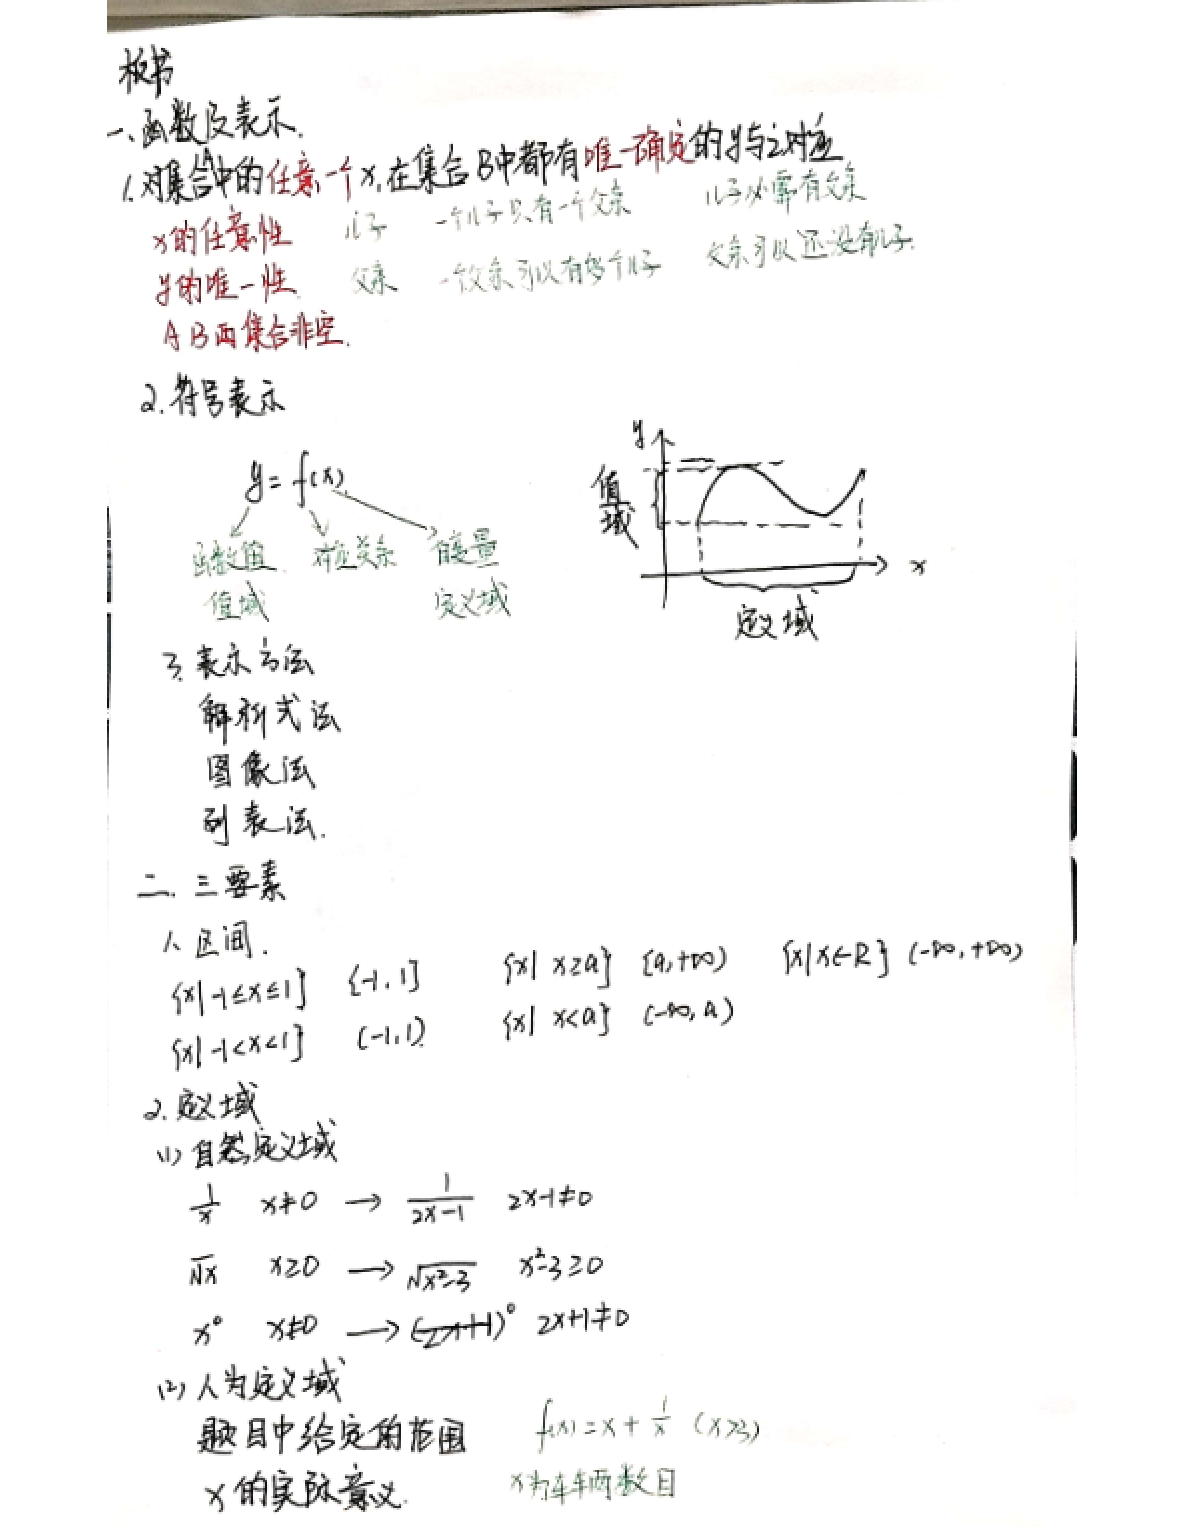 板书
一、函数及表示.
1.对集合A中的任意一个x,在集合B中都有唯一确定的y与之对应
x的任意性 儿子 一个儿子只有一个父亲 儿子必需有父亲
y的唯一性 父亲 一个父亲可以有多个儿子 父亲可以还没有儿子.
A B两集合非空.
2.符号表示
y=f(x)
函数值 对应关系 自变量
值域 定义域
y
值域
x
定义域
3.表示方法
解析式法
图像法
列表法.
二.三要素
1.区间.
{x|-1≤x≤1} [-1,1] {x|x≥a} [a,+∞) {x|x∈R} (-∞,+∞)
{x|-1<x<1} (-1,1) {x|x<a} (-∞,a)
2.定义域
(1)自然定义域
1/x x≠0 → 1/(2x-1) 2x-1≠0
√x x≥0 → √(x²-3) x²-3≥0
x⁰ x≠0 → (2x+1)⁰ 2x+1≠0
(2)人为定义域
题目中给定的范围 f(x)=x+1/x (x>3)
x的实际意义. x为车车两数目